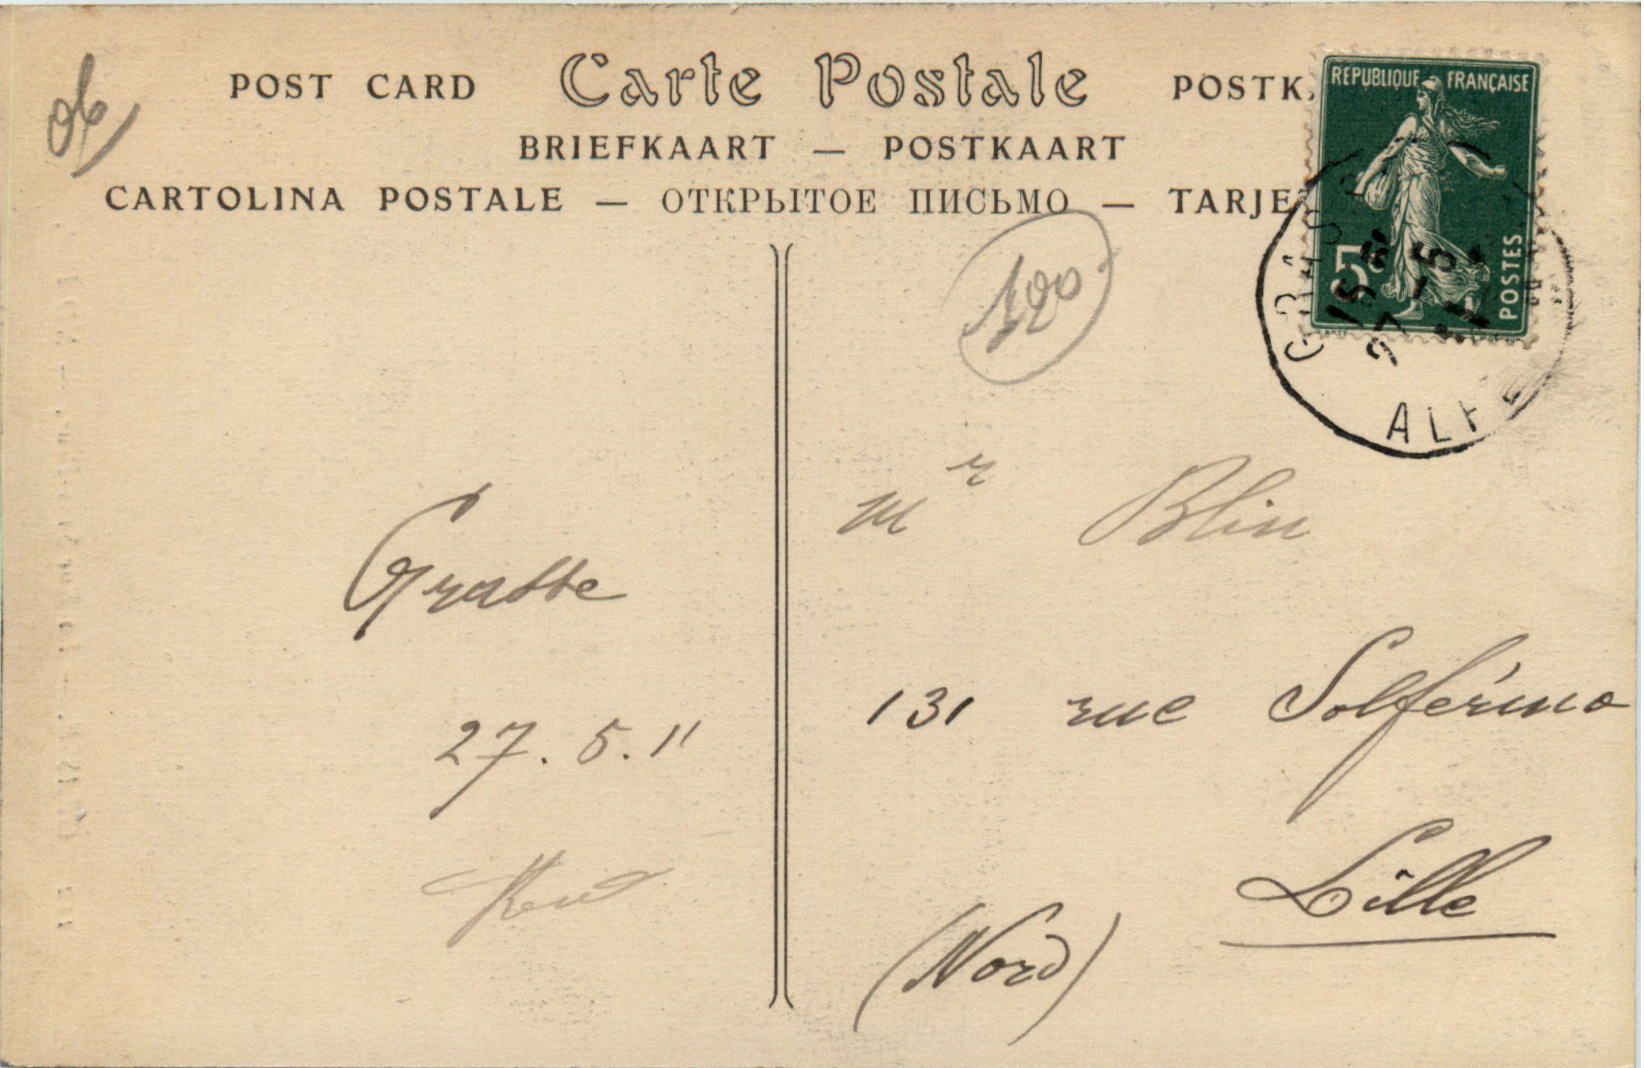 06
POST CARD Carte Postale POSTK
BRIEFKAART — POSTKAART
CARTOLINA POSTALE — ОТКРЫТОЕ ПИСЬМО — TARJE
REPUBLIQUE FRANÇAISE
5c
POSTES
GRASSE
15
27 - 5
11
ALP
120
Grasse
27.5.11
Mr Blin
131 rue Solférino
Lille
(Nord)